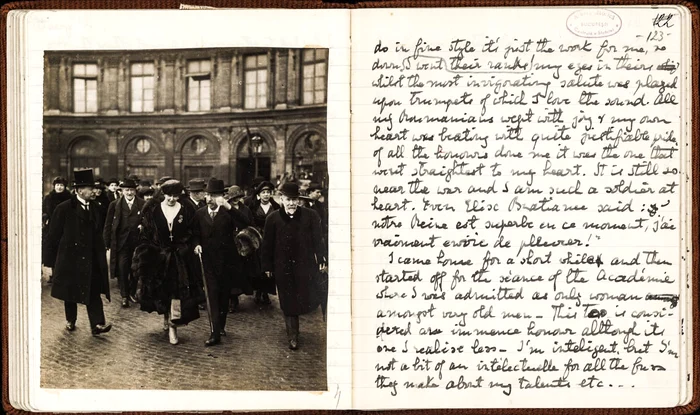 122
-123-
do in fine style it's just the work for me, so
down I went their ranks, my eyes in theirs
whilst the most invigorating salute was played
upon trumpets of which I love the sound. All
my Roumanians wept with joy & my own
heart was beating with quite justifiable pride
of all the honours done me it was the one that
went straightest to my heart. It is still so
near the war and I am such a soldier at
heart. Even Elise Bratianu said :
notre Reine est superbe en ce moment, j'ai
vraiment envie de pleurer!"
I came home for a short while and then
started off for the séance of the Academie
where I was admitted as only woman
amongst very old men - This is consi-
dered an immence honour although its
one I realise less - I'm inteligent, but I'm
not a bit of an intelectuelle for all the fuss
they make about my talents etc...